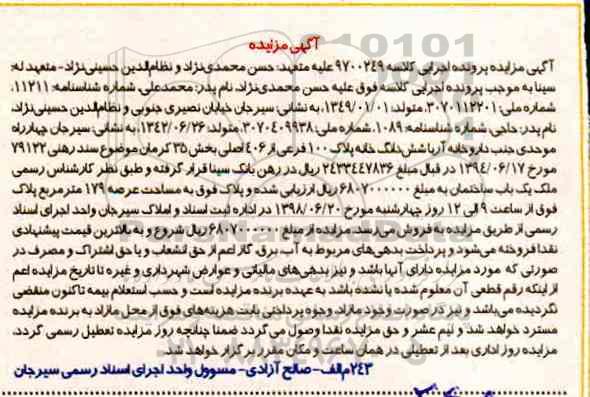 آگهی مزایده
آگهی مزایده پرونده اجرایی کلاسه ۹۷۰۰۲۴۹ علیه متعهد: حسن محمدی‌نژاد و نظام‌الدین حسینی‌نژاد- متعهد له:
سینا به موجب پرونده اجرایی کلاسه فوق علیه حسن محمدی‌نژاد، نام پدر: محمدعلی، شماره شناسنامه: ۱۱۲۱۱،
شماره ملی: ۳۰۷۰۱۱۲۲۰۱، متولد: ۱۳۴۹/۰۱/۰۱، به نشانی: سیرجان خیابان نصیری جنوبی و نظام‌الدین حسینی‌نژاد،
نام پدر: حاجی، شماره شناسنامه: ۱۰۸۹، شماره ملی: ۳۰۷۰۴۰۹۹۳۸، متولد: ۱۳۴۲/۰۶/۲۶، به نشانی: سیرجان چهارراه
موحدی جنب داروخانه آریا شش‌دانگ خانه پلاک ۱۰۰ فرعی از ۴۰۶ اصلی بخش ۳۵ کرمان موضوع سند رهنی ۷۹۱۲۲
مورخ ۱۳۹۴/۰۶/۱۷ در قبال مبلغ ۲۴۳۳۴۴۷۸۳۶ ریال در رهن بانک سینا قرار گرفته و طبق نظر کارشناس رسمی
ملک یک باب ساختمان به مبلغ ۶۸۰۷۰۰۰۰۰۰ ریال ارزیابی شده و پلاک فوق به مساحت عرصه ۱۷۹ متر مربع پلاک
فوق از ساعت ۹ الی ۱۲ روز چهارشنبه مورخ ۱۳۹۸/۰۶/۲۰ در اداره ثبت اسناد و املاک سیرجان واحد اجرای اسناد
رسمی از طریق مزایده به فروش می‌رسد. مزایده از مبلغ ۶۸۰۷۰۰۰۰۰۰ ریال شروع و به بالاترین قیمت پیشنهادی
نقدا فروخته می‌شود و پرداخت بدهی‌های مربوط به آب، برق، گاز اعم از حق انشعاب و یا حق اشتراک و مصرف در
صورتی که مورد مزایده دارای آنها باشد و نیز بدهی‌های مالیاتی و عوارض شهرداری و غیره تا تاریخ مزایده اعم
از اینکه رقم قطعی آن معلوم شده یا نشده باشد به عهده برنده مزایده است و حسب استعلام بیمه تاکنون منقضی
نگردیده می‌باشد و نیز در صورت وجود مازاد، وجوه پرداختی بابت هزینه‌های فوق از محل مازاد به برنده مزایده
مسترد خواهد شد و نیم عشر و حق مزایده نقدا وصول می گردد ضمنا چنانچه روز مزایده تعطیل رسمی گردد،
مزایده روز اداری بعد از تعطیلی در همان ساعت و مکان مقرر برگزار خواهد شد.
۲۴۳م‌الف- صالح آزادی- مسوول واحد اجرای اسناد رسمی سیرجان